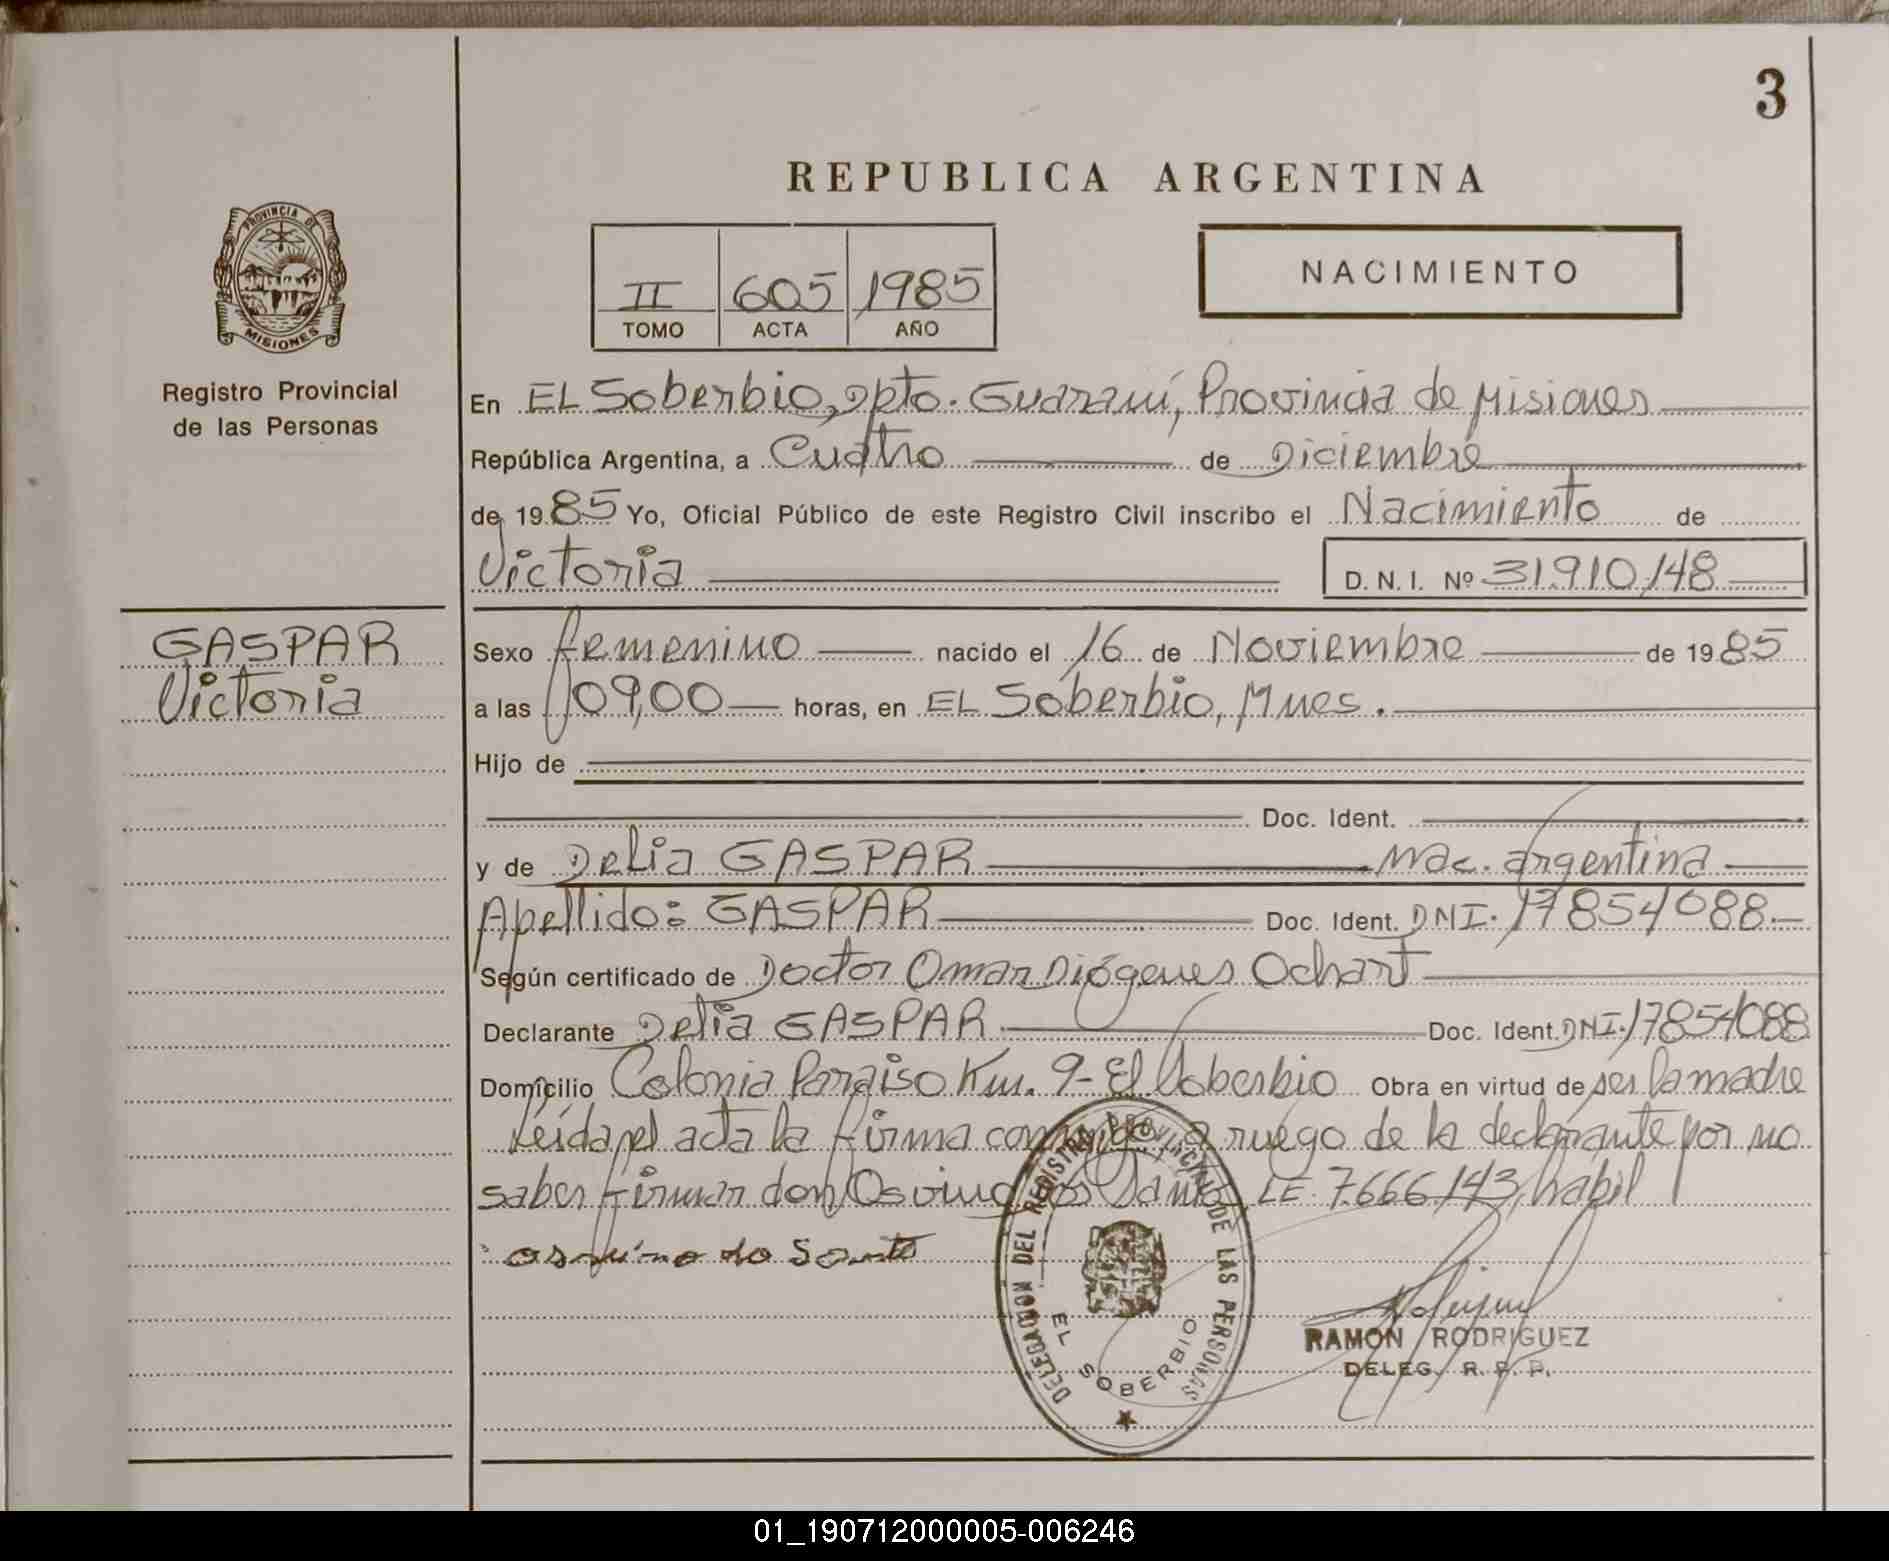 3
REPUBLICA ARGENTINA
PROVINCIA DE
MISIONES
Registro Provincial
de las Personas
II 605 1985
TOMO ACTA AÑO
NACIMIENTO
En EL Soberbio, Dpto. Guaraní, Provincia de Misiones
República Argentina, a Cuatro de Diciembre
de 1985 Yo, Oficial Público de este Registro Civil inscribo el Nacimiento de
Victoria D. N. I. Nº 31.910.148
GASPAR
Victoria
Sexo femenino nacido el 16 de Noviembre de 1985
a las 09,00 horas, en EL Soberbio, Mnes.
Hijo de
Doc. Ident.
y de Delia GASPAR nac. argentina
Apellido: GASPAR Doc. Ident. DNI. 17854088
Según certificado de Doctor Omar Diógenes Ochart
Declarante Delia GASPAR Doc. Ident. DNI. 17854088
Domicilio Colonia Paraiso Km. 9- El Soberbio Obra en virtud de ser la madre
Leída el acta la firma conmigo a ruego de la declarante por no
saber firmar don Osvino LE. 7.666.143, habil
DELEGACION DEL REGISTRO PROVINCIAL DE LAS PERSONAS
EL SOBERBIO
RAMON RODRIGUEZ
DELEG. R. P. P.
01_190712000005-006246